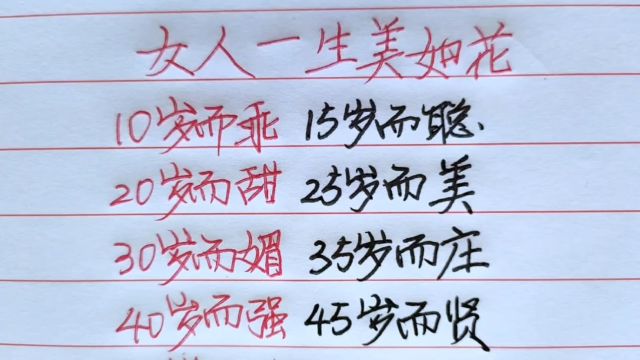 女人一生美如花
10岁而乖 15岁而聪
20岁而甜 25岁而美
30岁而媚 35岁而庄
40岁而强 45岁而贤